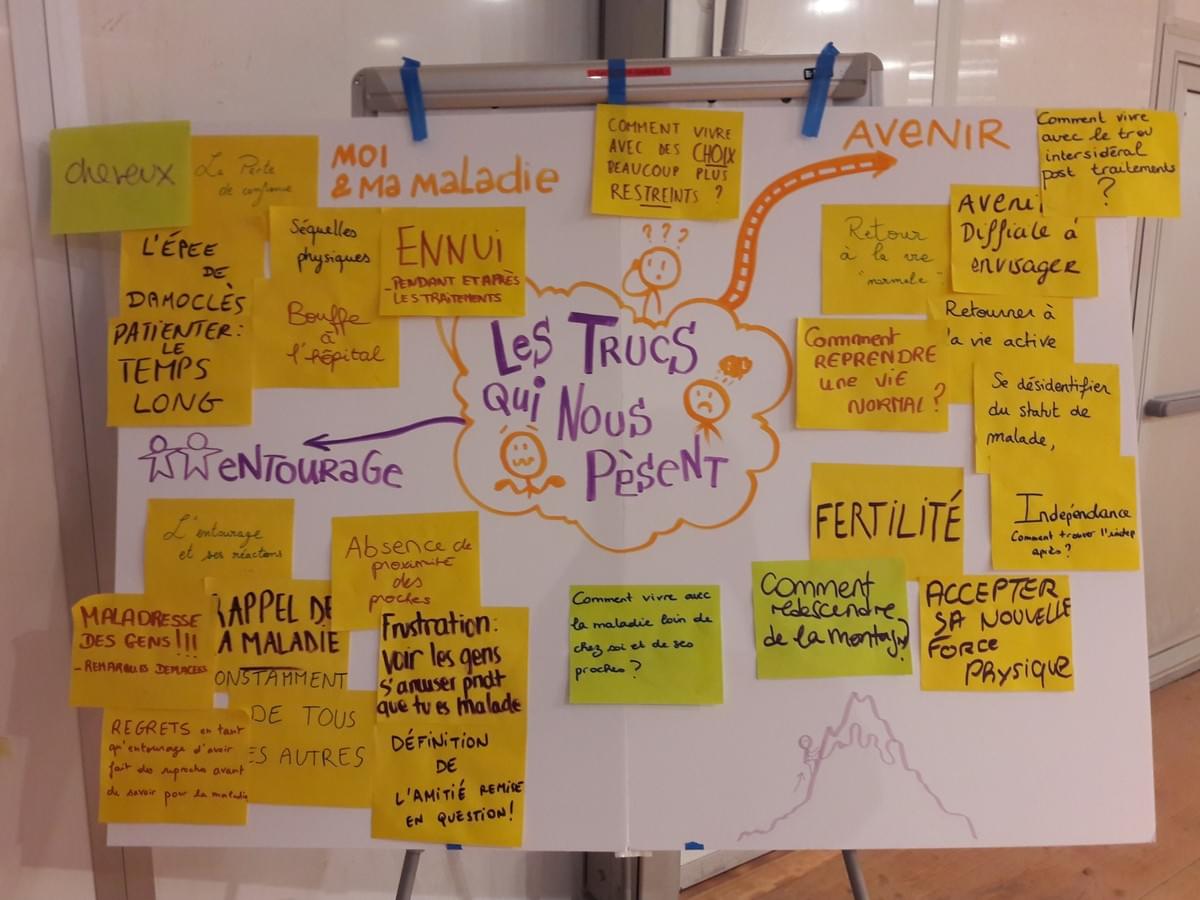 cheveux
La Perte
de confiance
MOI
& MA MALADIE
L'ÉPEE
DE
DAMOCLÈS
Séquelles
physiques
ENNUI
-PENDANT ET APRÈS
LES TRAITEMENTS
PATIENTER:
LE
TEMPS
LONG
Bouffe
à
l'hôpital
COMMENT VIVRE
AVEC DES CHOIX
BEAUCOUP PLUS
RESTREINTS ?
???
LES TRUCS
QUI NOUS
PÈSENT
AVENIR
Comment vivre
avec le trou
intersidéral
post traitements
?
Retour
à la vie
"normale"
AVENI
Difficile à
envisager
Retourner à
la vie active
Comment
REPRENDRE
une vie
NORMAL ?
Se désidentifier
du statut de
malade,
FERTILITÉ
Indépendance
Comment trouver l'indep
après ?
Comment
redescendre
de la montagne?
ACCEPTER
SA NOUVELLE
FORCE
PHYSIQUE
ENTOURAGE
L'entourage
et ses réactions
Absence de
proximité
des
proches
MALADRESSE
DES GENS!!!
- REMARQUES DEPLACEES
RAPPEL DE
LA MALADIE
ONSTAMMENT
DE TOUS
ES AUTRES
Frustration:
voir les gens
s'amuser pndt
que tu es malade
REGRETS en tant
qu'entourage d'avoir
fait des reproches avant
de savoir pour la maladie
DÉFINITION
DE
L'AMITIÉ REMISE
EN QUESTION!
Comment vivre avec
la maladie loin de
chez soi et de ses
proches ?